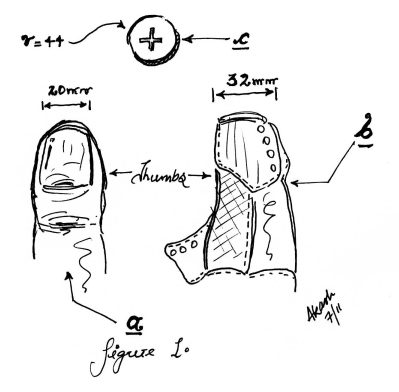 r=44
c
20mm
32mm
b
Thumbs
a
figure 1.
Akash
7/11